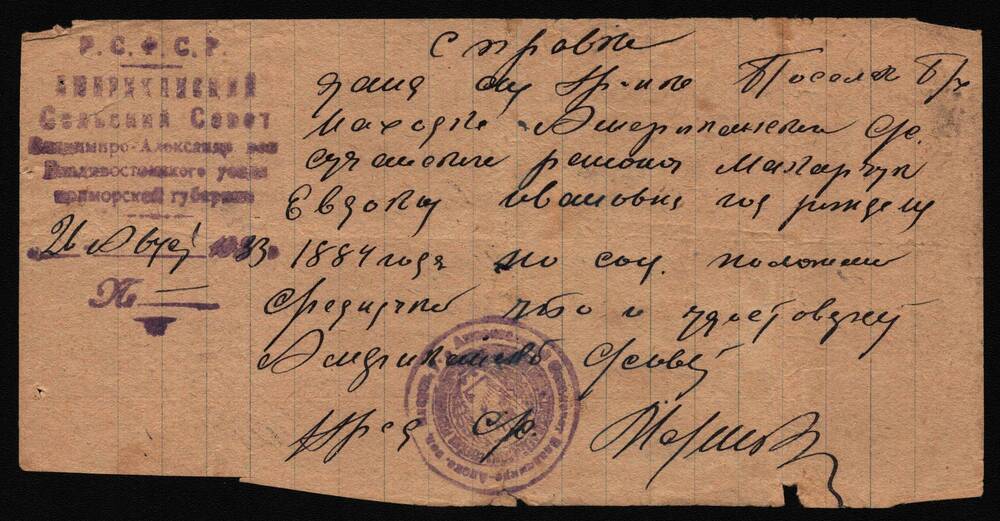 Р.С.Ф.С.Р.
АМЕРИКАНСКИЙ
Сельский Совет
Владимиро-Александровской
Владивостокского уезда
Приморской губернии
26 Авг 1933
№ —
Справка
дана сия гр-ке Поселка Б/х
Находка Американский С/с.
Сучанский района Макарчук
Евдокии Ивановна год рождения
1884 года по соц. положению
Среднячка что и удостоверяет
Американский С/совет
Пред С/с.